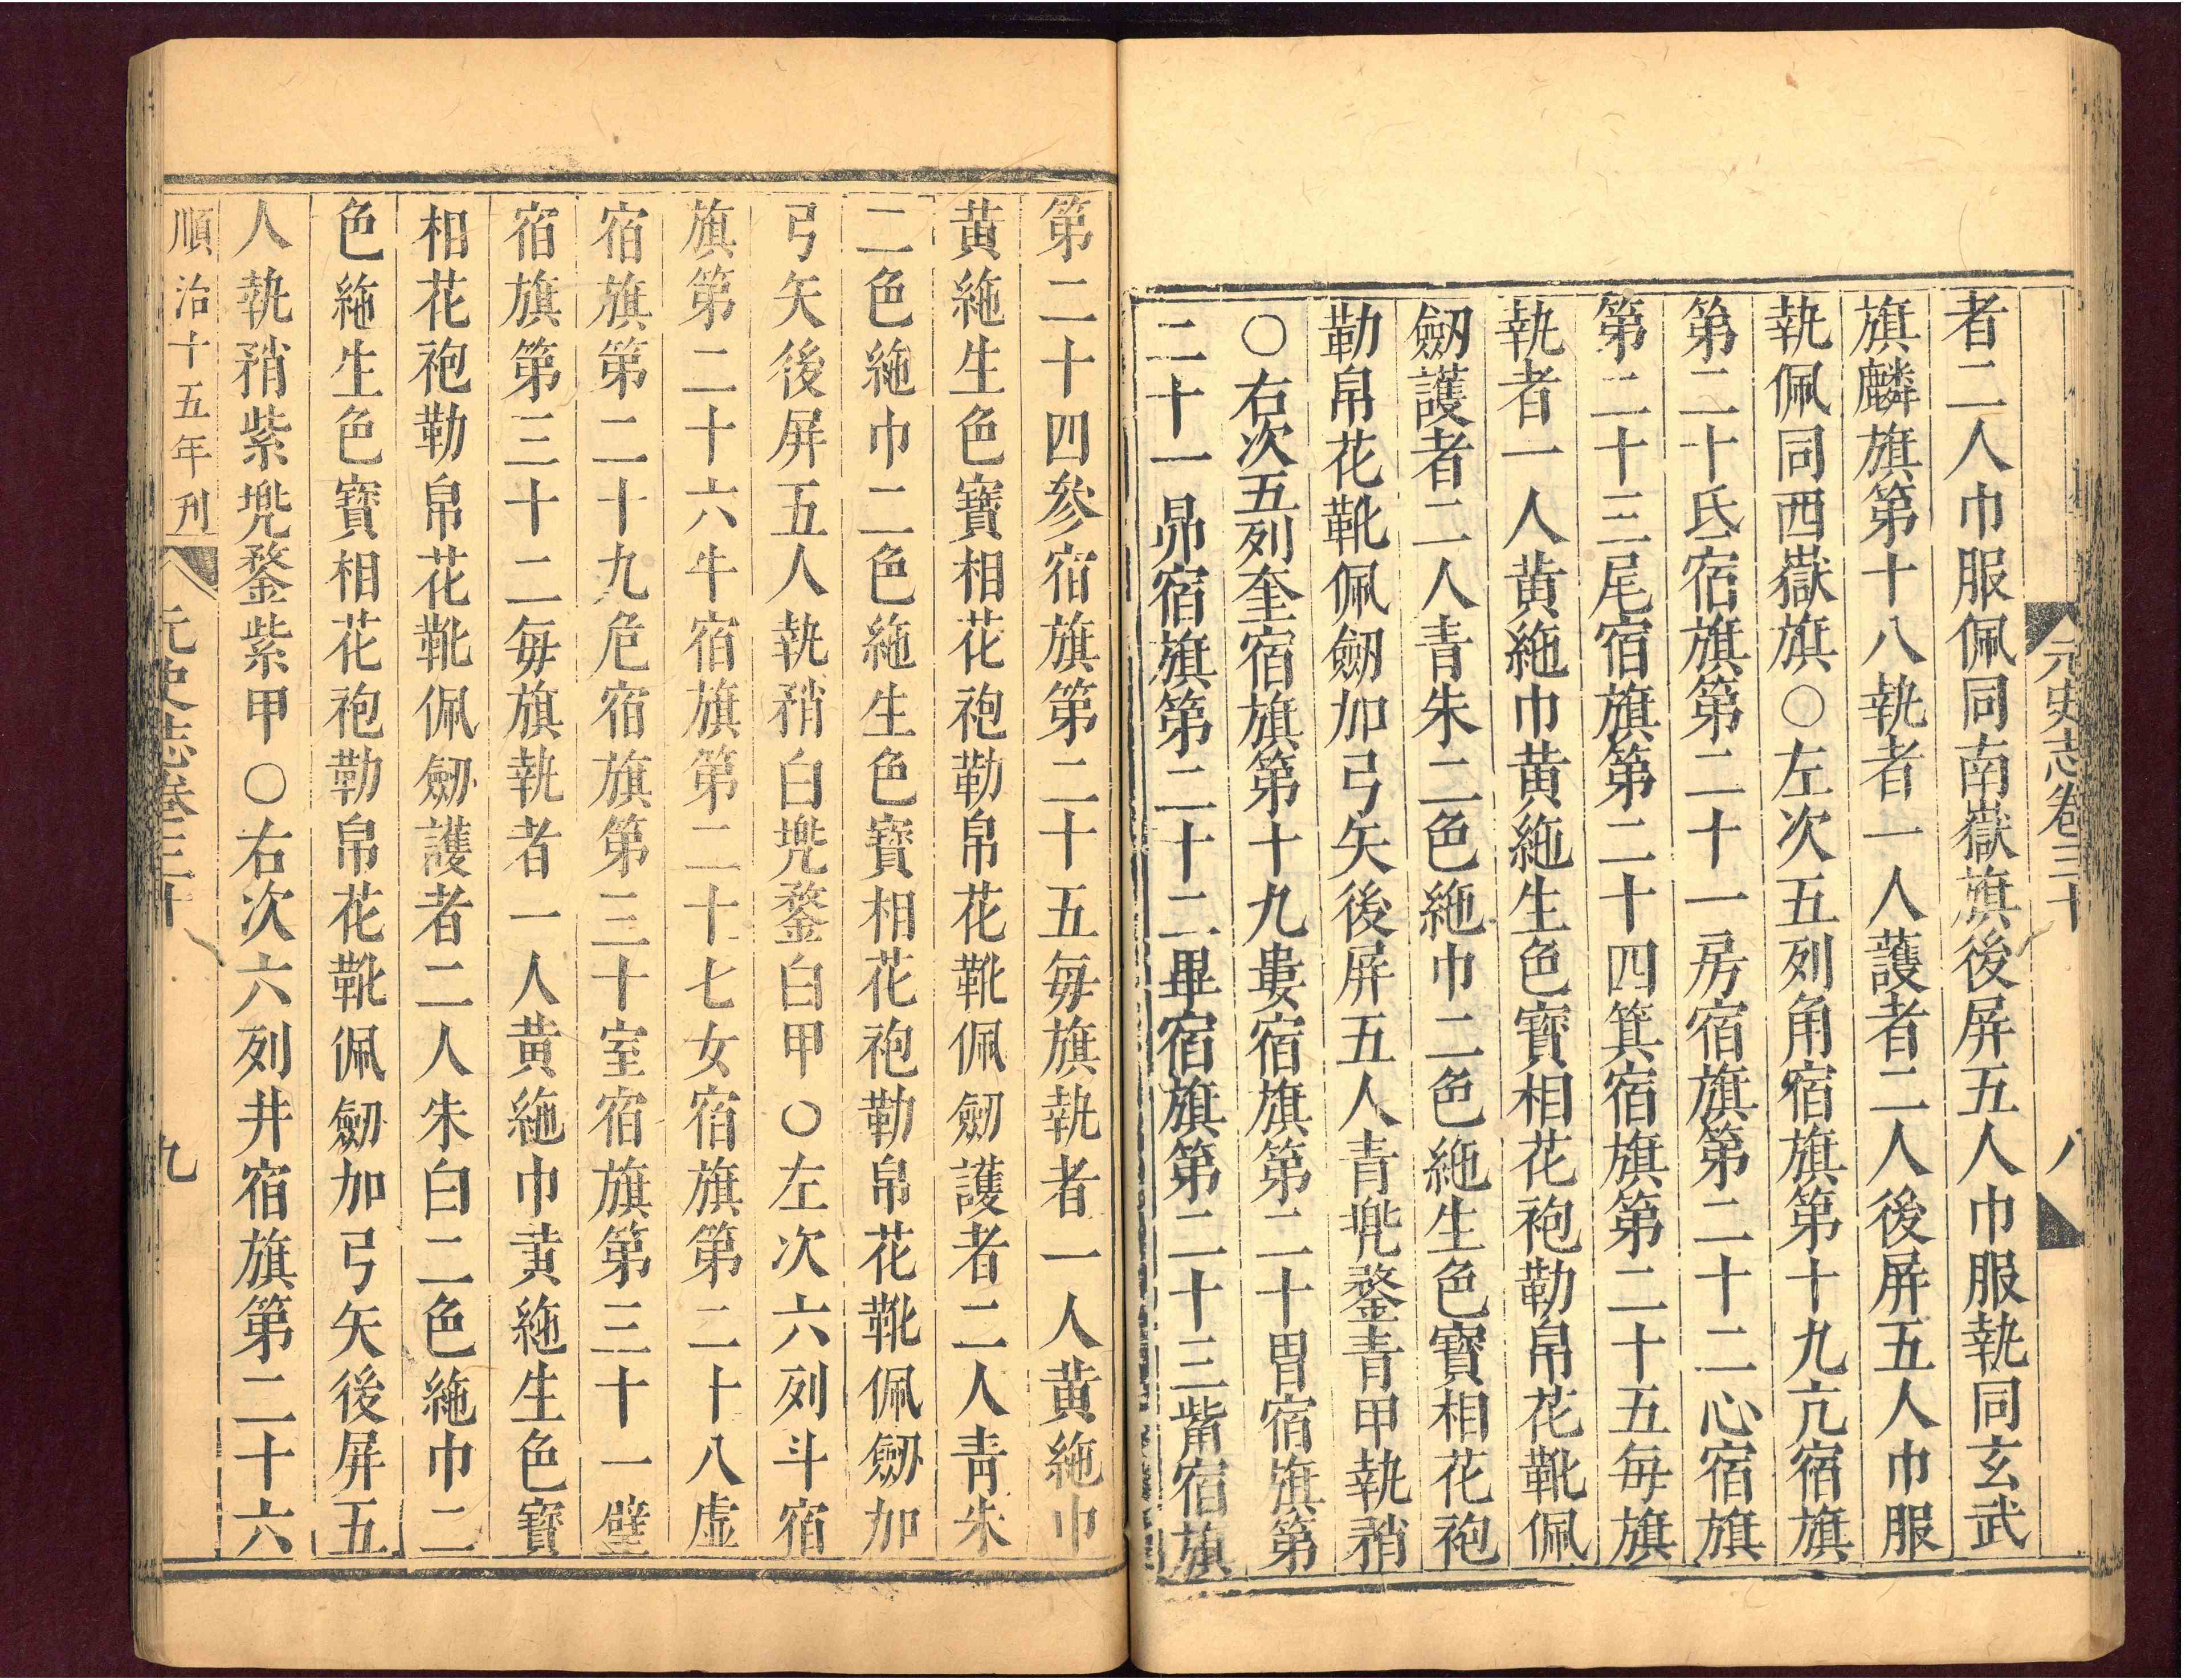 元史志卷三十
八
者二人巾服佩同南嶽旗後屏五人巾服執同玄武
旗麟旗第十八執者一人護者二人後屏五人巾服
執佩同西嶽旗○左次五列角宿旗第十九亢宿旗
第二十氐宿旗第二十一房宿旗第二十二心宿旗
第二十三尾宿旗第二十四箕宿旗第二十五每旗
執者一人黄絁巾黄絁生色寳相花袍勒帛花靴佩
劒護者二人青朱二色絁巾二色絁生色寳相花袍
勒帛花靴佩劒加弓矢後屏五人青兠鍪青甲執矟
○右次五列奎宿旗第十九婁宿旗第二十胃宿旗第
二十一昴宿旗第二十二畢宿旗第二十三觜宿旗
第二十四參宿旗第二十五每旗執者一人黄絁巾
黄絁生色寳相花袍勒帛花靴佩劒護者二人青朱
二色絁巾二色絁生色寳相花袍勒帛花靴佩劒加
弓矢後屏五人執矟白兠鍪白甲○左次六列斗宿
旗第二十六牛宿旗第二十七女宿旗第二十八虚
宿旗第二十九危宿旗第三十室宿旗第三十一壁
宿旗第三十二每旗執者一人黄絁巾黄絁生色寳
相花袍勒帛花靴佩劒護者二人朱白二色絁巾二
色絁生色寳相花袍勒帛花靴佩劒加弓矢後屏五
人執矟紫兠鍪紫甲○右次六列井宿旗第二十六
順治十五年刊
元史志卷三十
九